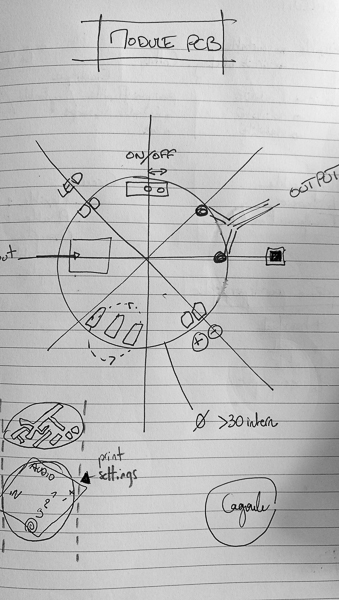 MODULE PCB
ON/OFF
LED
OUTPUT
Ø >30 intern
print
settings
AUDIO
Cagoule